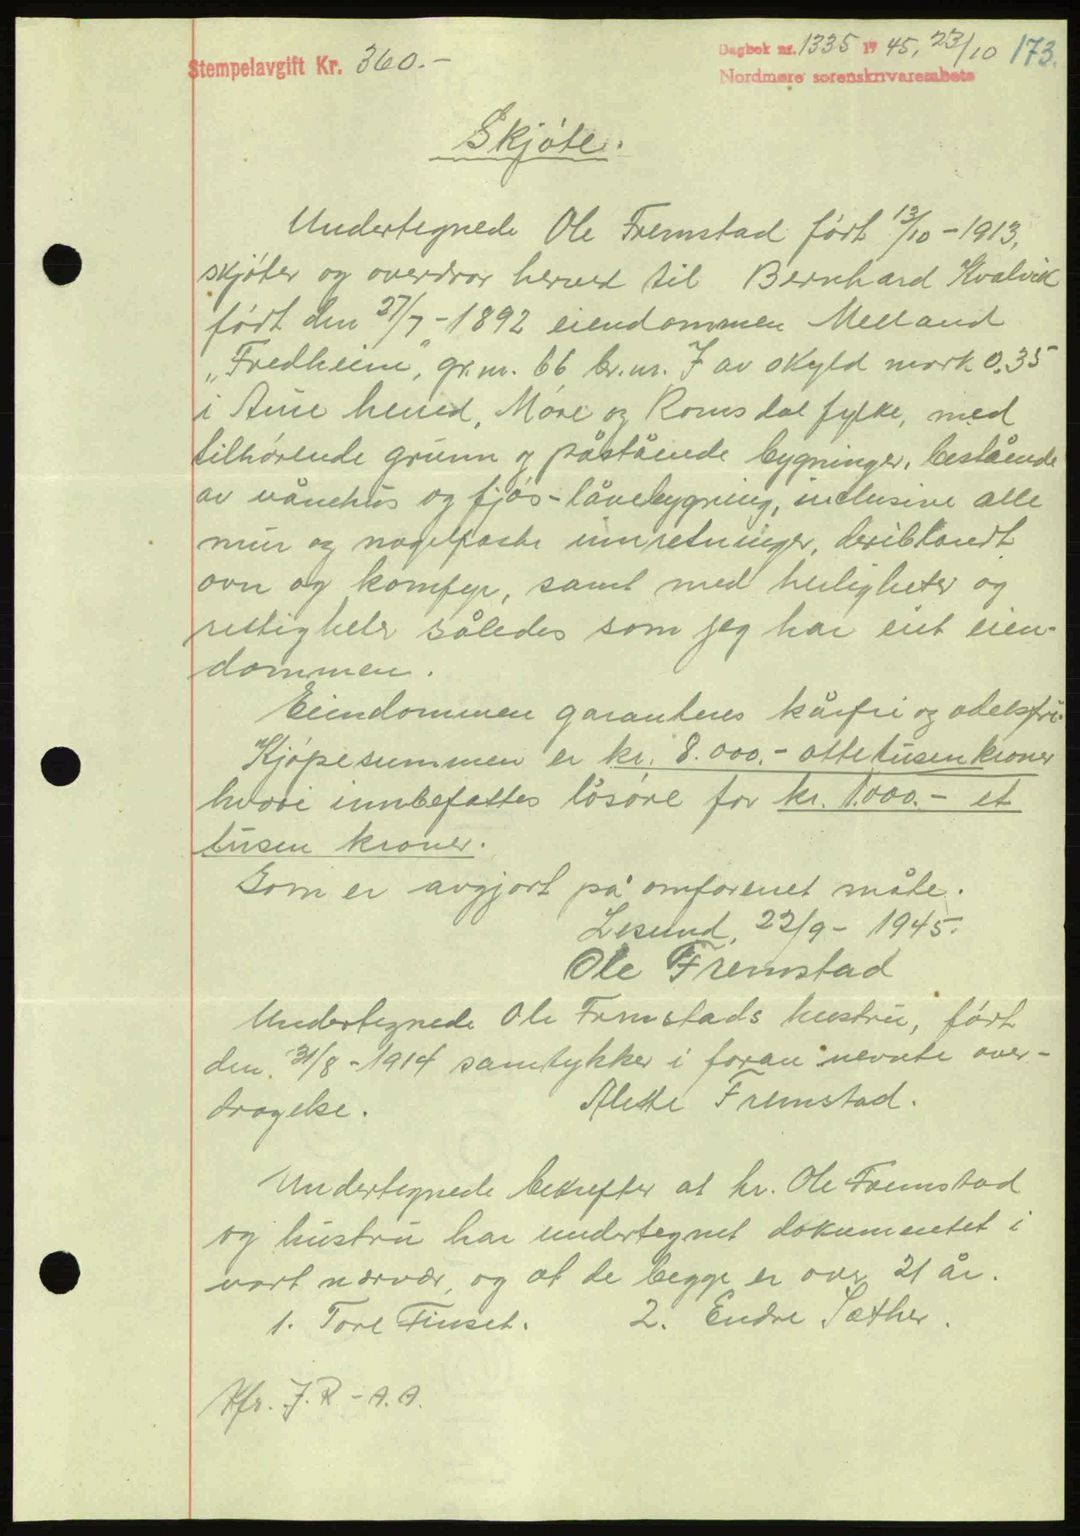 Stempelavgift Kr. 360.-
Dagbok nr. 1335 19 45, 23/10 173.
Nordmøre sorenskrivarembete
Skjøte.
Undertegnede Ole Fremstad født 13/10 - 1913,
skjøter og overdrar herved til Bernhard Kvalvik
født den 27/7 - 1892 eiendommen Melland
"Fredheim", gr.nr. 66 br.nr. 7 av skyld mark 0.35
i Aure herred, Møre og Romsdal fylke, med
tilhørende grunn og påstående bygninger, bestående
av vånehus og fjøs-låvebygning, inclusive alle
mur og nagelfaste innretninger, deriblandt
ovn og komfyr, samt med herligheter og
rettigheter således som jeg har eiet eien-
dommen.
Eiendommen garanteres kårfri og odelsfri.
Kjøpesummen er kr. 8.000.- ottetusen kroner
hvori innbefattes løsøre for kr. 1.000.- et
tusen kroner.
Som er avgjort på omforenet måte.
Lesund, 22/9 - 1945.
Ole Fremstad
Undertegnede Ole Fremstads hustru, født
den 31/8 - 1914 samtykker i foran nevnte over-
dragelse. Alette Fremstad.
Undertegnede bekrefter at hr. Ole Fremstad
og hustru har undertegnet dokumentet i
vort nærvær, og at de begge er over 21 år.
1. Tore Finset. 2. Endre Sæther.
Kfr. J.R - A.A.